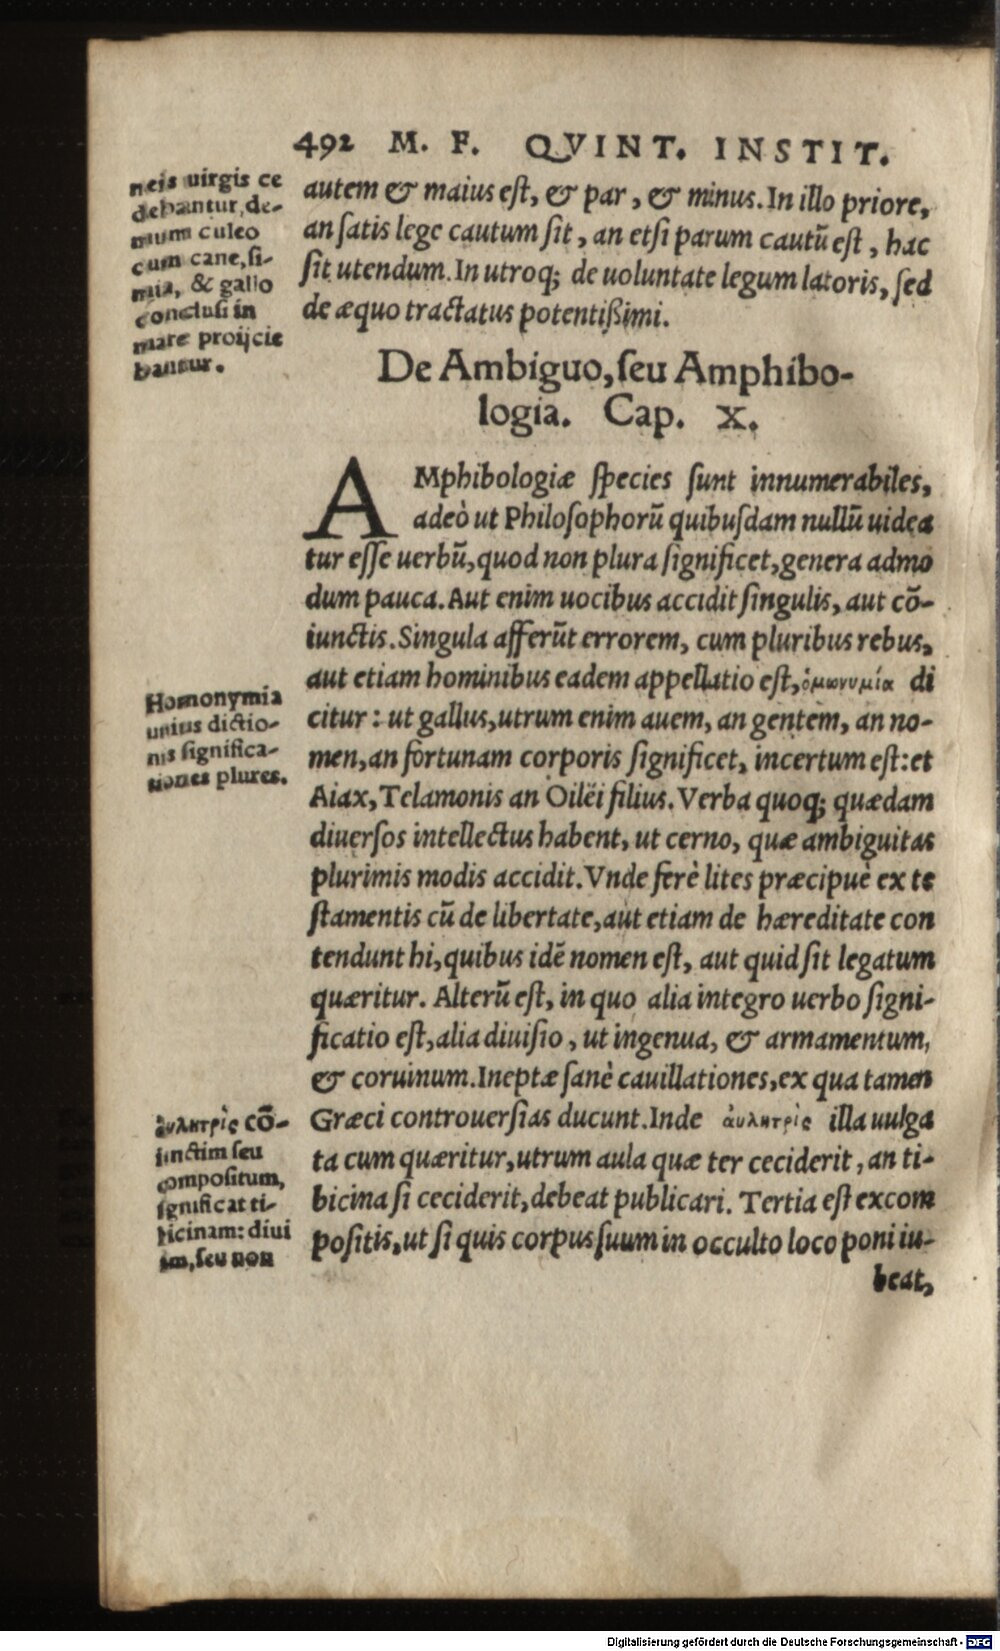 492 M. F. QVINT. INSTIT.
neis uirgis ce
debantur, de-
mum culeo
cum cane, si-
mia, & gallo
conclusi in
mare proijcie
bantur.
autem & maius est, & par, & minus. In illo priore,
an satis lege cautum sit, an etsi parum cautū est, hac
sit utendum. In utroq; de uoluntate legum latoris, sed
de æquo tractatus potentißimi.
De Ambiguo, seu Amphibo-
logia. Cap. X.
AMphibologiæ species sunt innumerabiles,
adeò ut Philosophorū quibusdam nullū uidea
tur esse uerbū, quod non plura significet, genera admo
dum pauca. Aut enim uocibus accidit singulis, aut cō-
iunctis. Singula afferūt errorem, cum pluribus rebus,
aut etiam hominibus eadem appellatio est, ὁμωνυμία di
citur: ut gallus, utrum enim auem, an gentem, an no-
men, an fortunam corporis significet, incertum est: et
Aiax, Telamonis an Oilëi filius. Verba quoq; quædam
diuersos intellectus habent, ut cerno, quæ ambiguitas
plurimis modis accidit. Vnde ferè lites præcipuè ex te
stamentis cū de libertate, aut etiam de hæreditate con
tendunt hi, quibus idē nomen est, aut quid sit legatum
quæritur. Alterū est, in quo alia integro uerbo signi-
ficatio est, alia diuisio, ut ingenua, & armamentum,
& coruinum. Ineptæ sanè cauillationes, ex qua tamen
Græci controuersias ducunt. Inde ἀυλητρὶς illa uulga
ta cum quæritur, utrum aula quæ ter ceciderit, an ti-
bicina si ceciderit, debeat publicari. Tertia est ex com
positis, ut si quis corpus suum in occulto loco poni iu-
beat,
Homonymia
unius dictio-
nis significa-
tiones plures.
ἀυλητρὶς cō-
iunctim seu
compositum,
significat ti-
bicinam: diui
sim, seu non
Digitalisierung gefördert durch die Deutsche Forschungsgemeinschaft - DFG